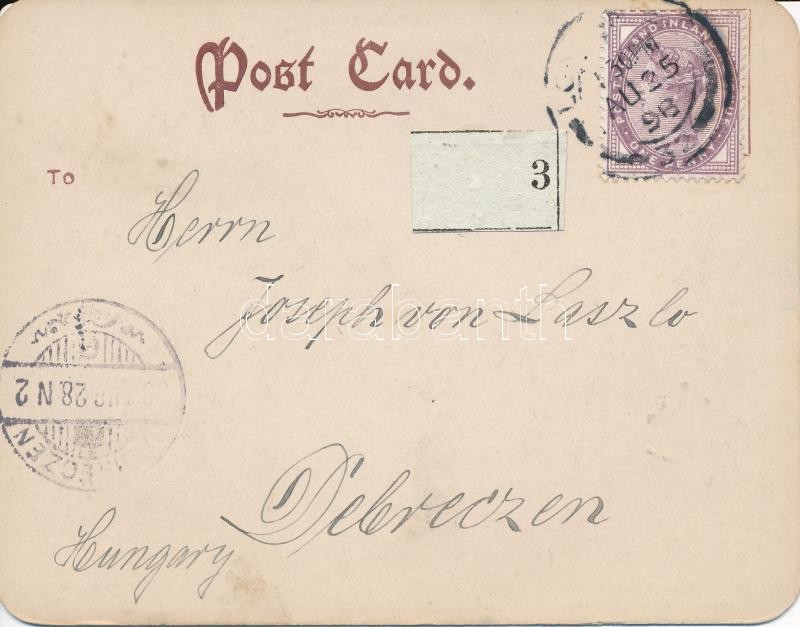 Post Card.
POSTAGE AND INLAND
ONE PENNY
AU 25
98
3
TO
Herrn
Joseph von Laszlo
darabanth
28 N 2
ECZEN
Debreczen
Hungary